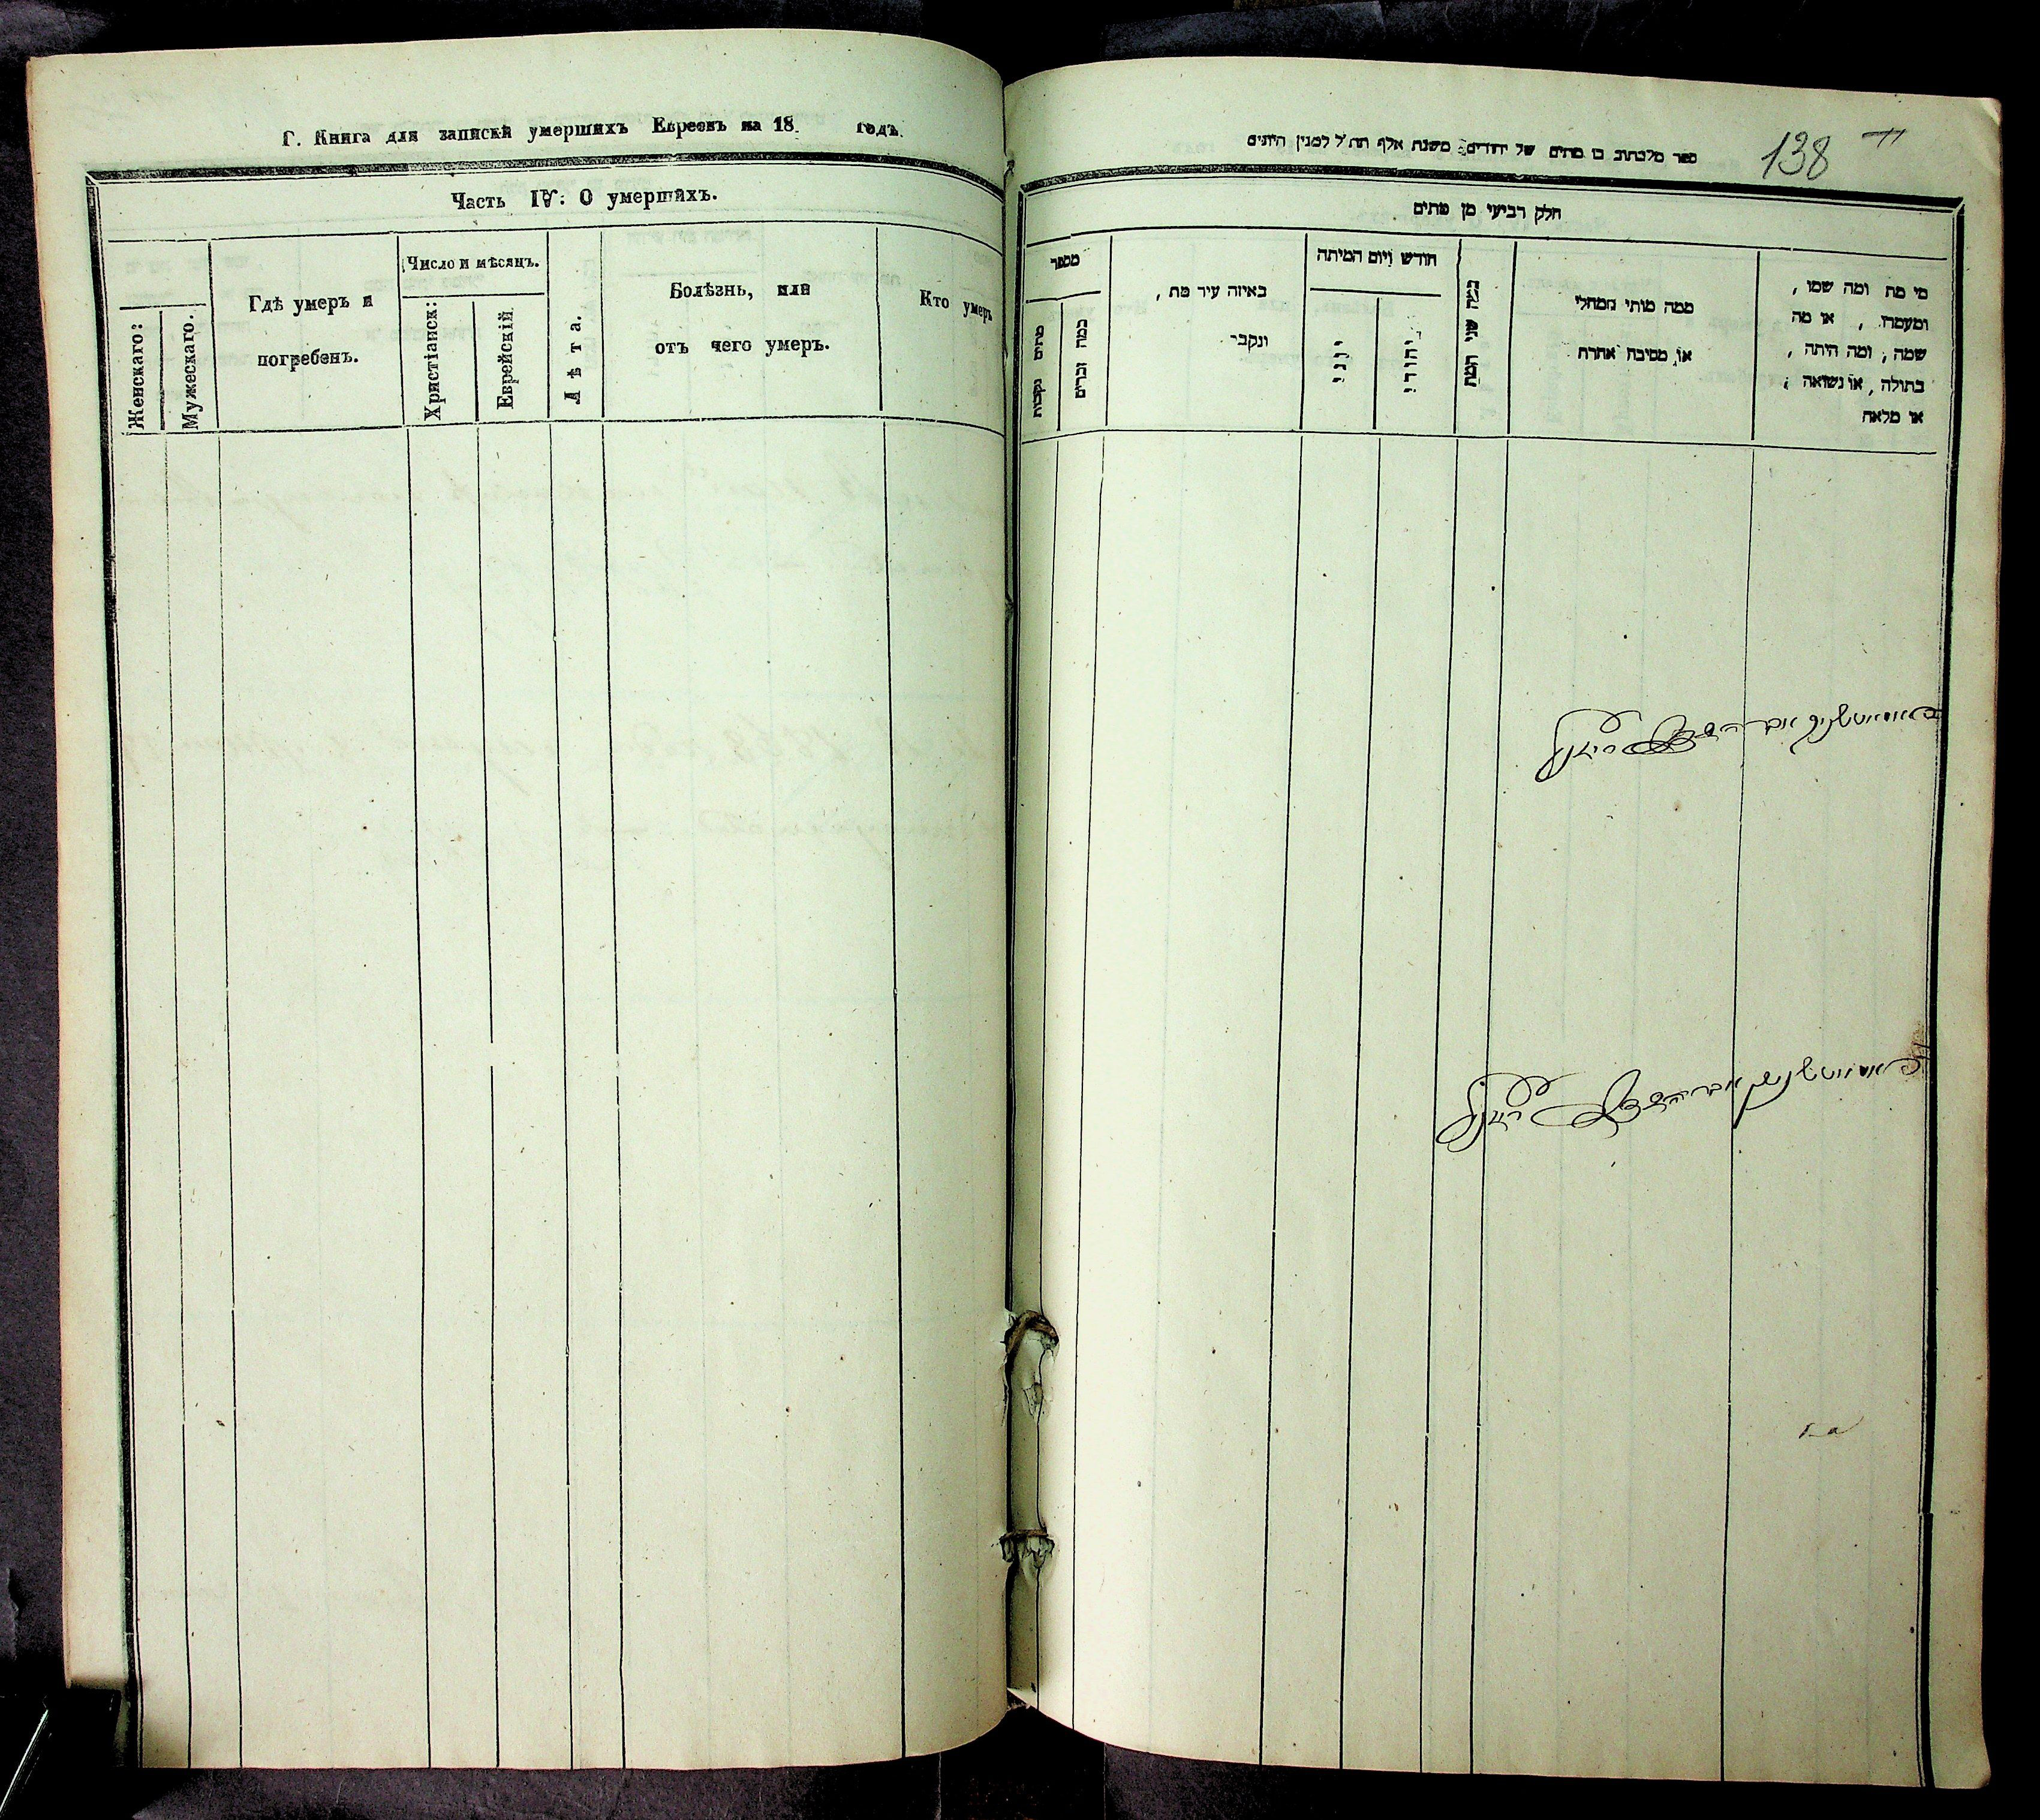 Г. Книга для записки умершихъ Евреевъ на 18 годъ.
Часть IV: О умершихъ.
Женскаго:
Мужескаго.
Гдѣ умеръ и
погребенъ.
Число и мѣсяцъ.
Христіанск:
Еврейскій.
Лѣта.
Болѣзнь, или
отъ чего умеръ.
Кто умеръ
138
ספר מלכתוב בו מתים של יהודים משנת אלף תת״ל למנין היונים
חלק רביעי מן מתים
מי מת ומה שמו ,
ומעמדו , או מה
שמה , ומה היתה ,
בתולה , או נשואה ;
או מלאה
ממה מותי ממחלי
או מסיבה אחרת
כמה שני המת
חודש ויום המיתה
יהודי
יוני
באיזה עיר מת ,
ונקבר
מספר
כמה זכרים
מתים נקבות